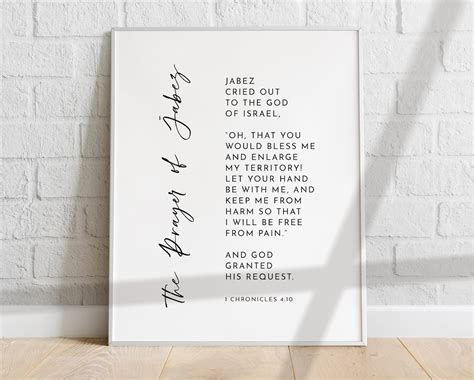 The Prayer of Jabez
JABEZ
CRIED OUT
TO THE GOD
OF ISRAEL,
"OH, THAT YOU
WOULD BLESS ME
AND ENLARGE
MY TERRITORY!
LET YOUR HAND
BE WITH ME, AND
KEEP ME FROM
HARM SO THAT
I WILL BE FREE
FROM PAIN."
AND GOD
GRANTED
HIS REQUEST.
1 CHRONICLES 4:10